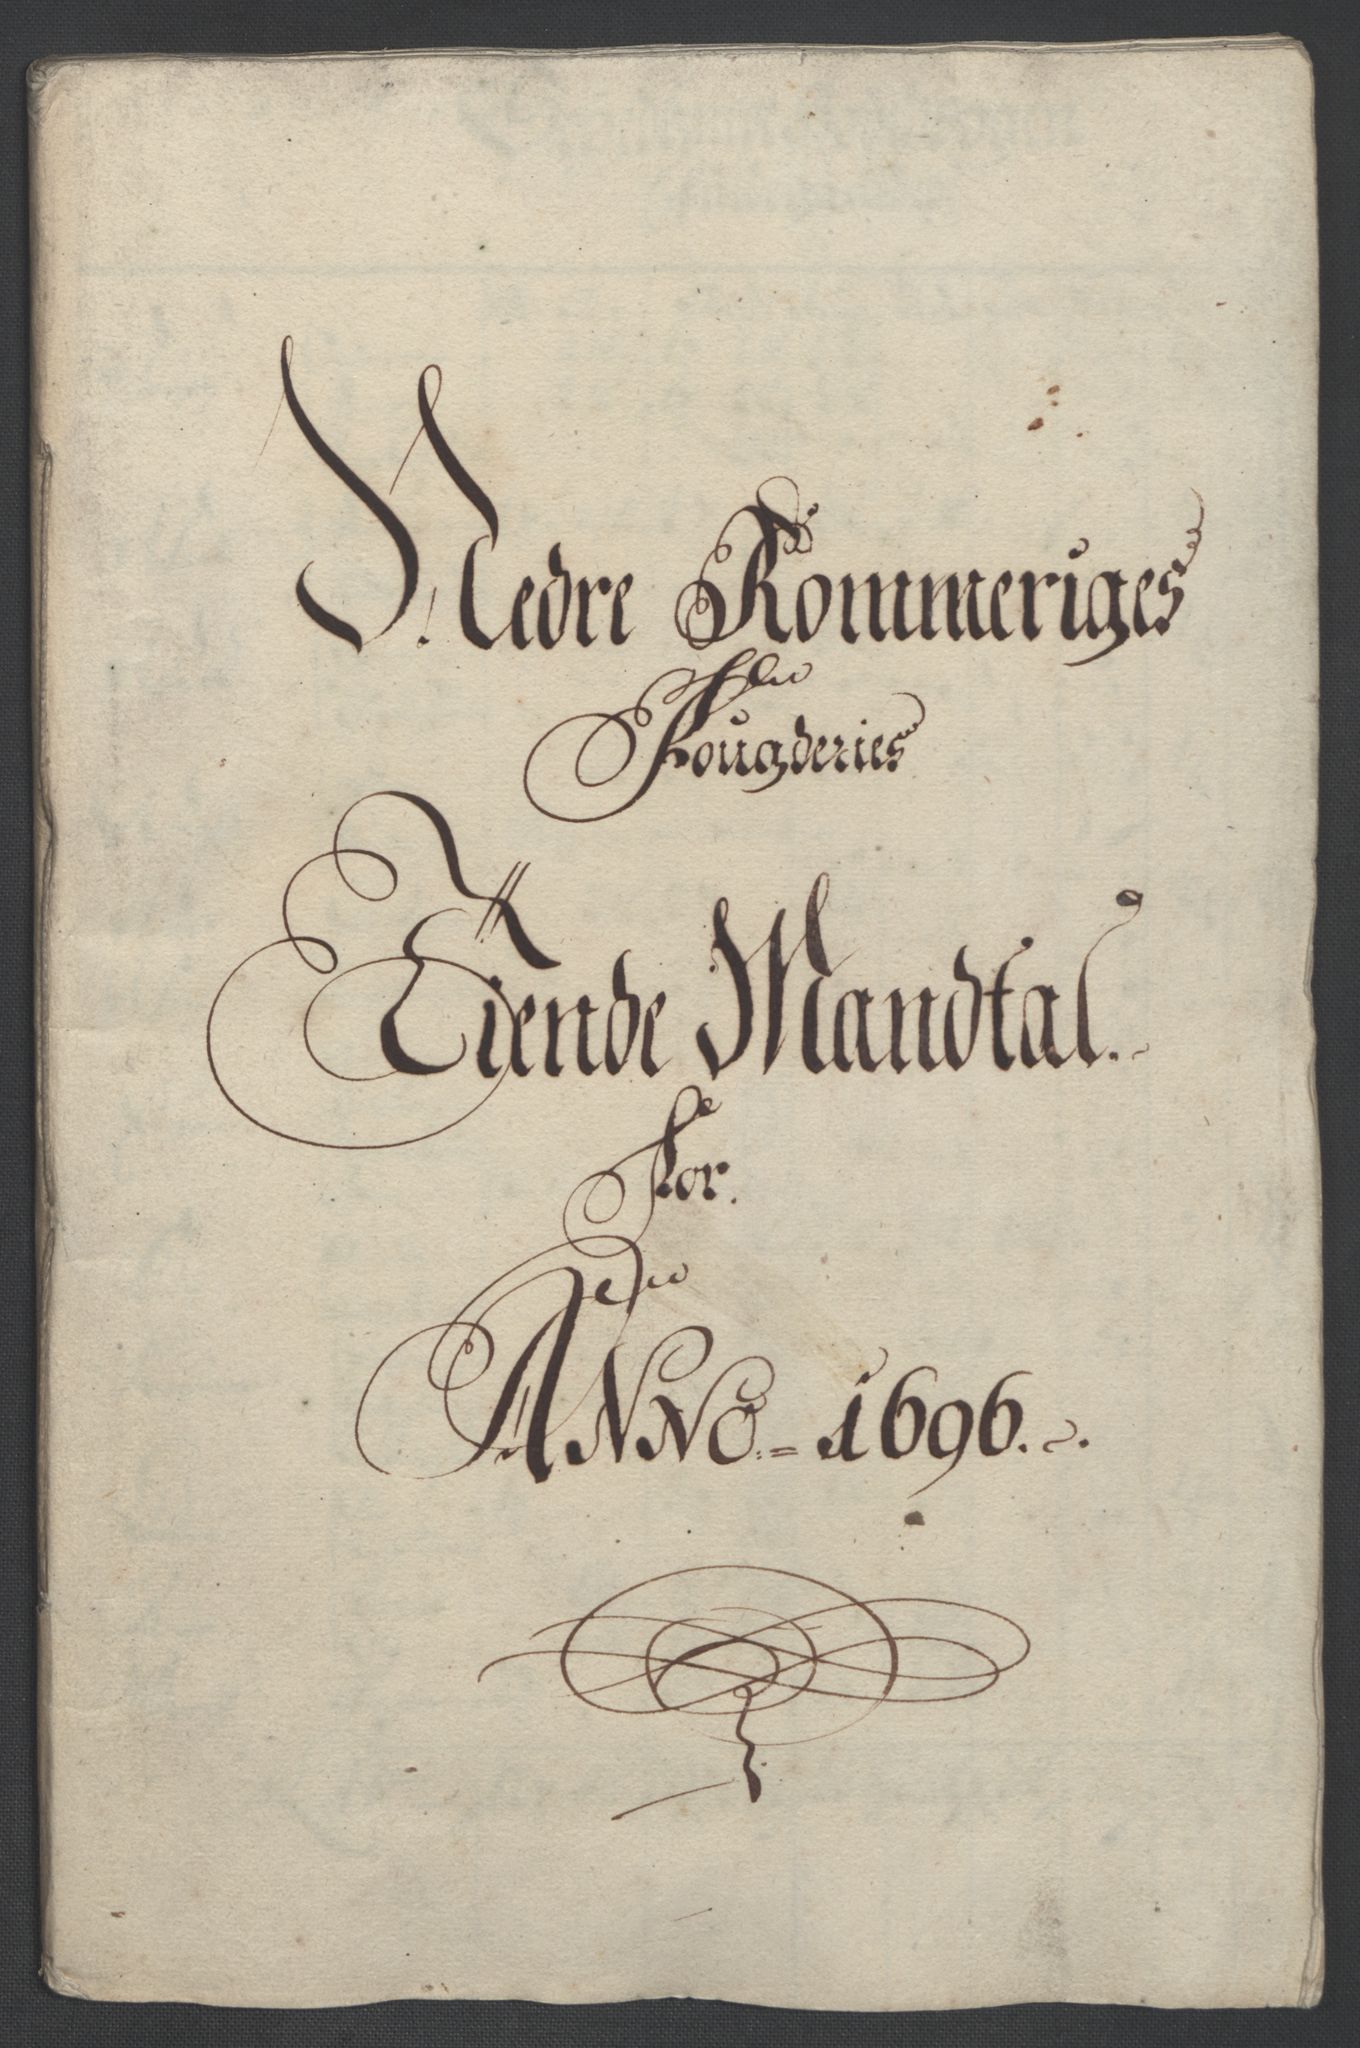 Nedre Rommeriges
Fougderies
Tiende Mandtal.
For.
ANNO. = 1696.